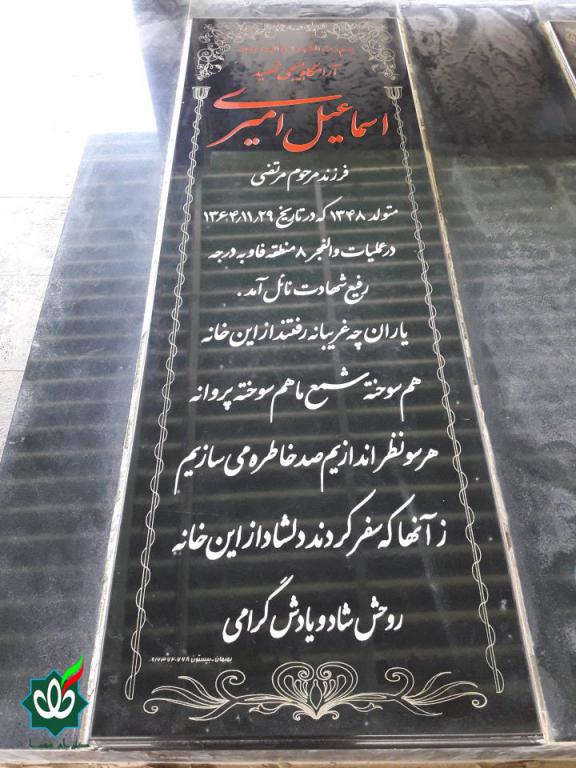 آرامگاه ابدی شهید
اسماعیل امیری
فرزند مرحوم مرتضی
متولد ۱۳۴۸ که در تاریخ ۱۳۶۴/۱۱/۲۹
در عملیات والفجر ۸ منطقه فاو به درجه
رفیع شهادت نائل آمد.
یاران چه غریبانه رفتند از این خانه
هم سوخته شمع ما هم سوخته پروانه
هر سو نظر اندازیم صد خاطره می سازیم
ز آنها که سفر کردند دلشاد از این خانه
روحش شاد و یادش گرامی
بهبهان - بیستون